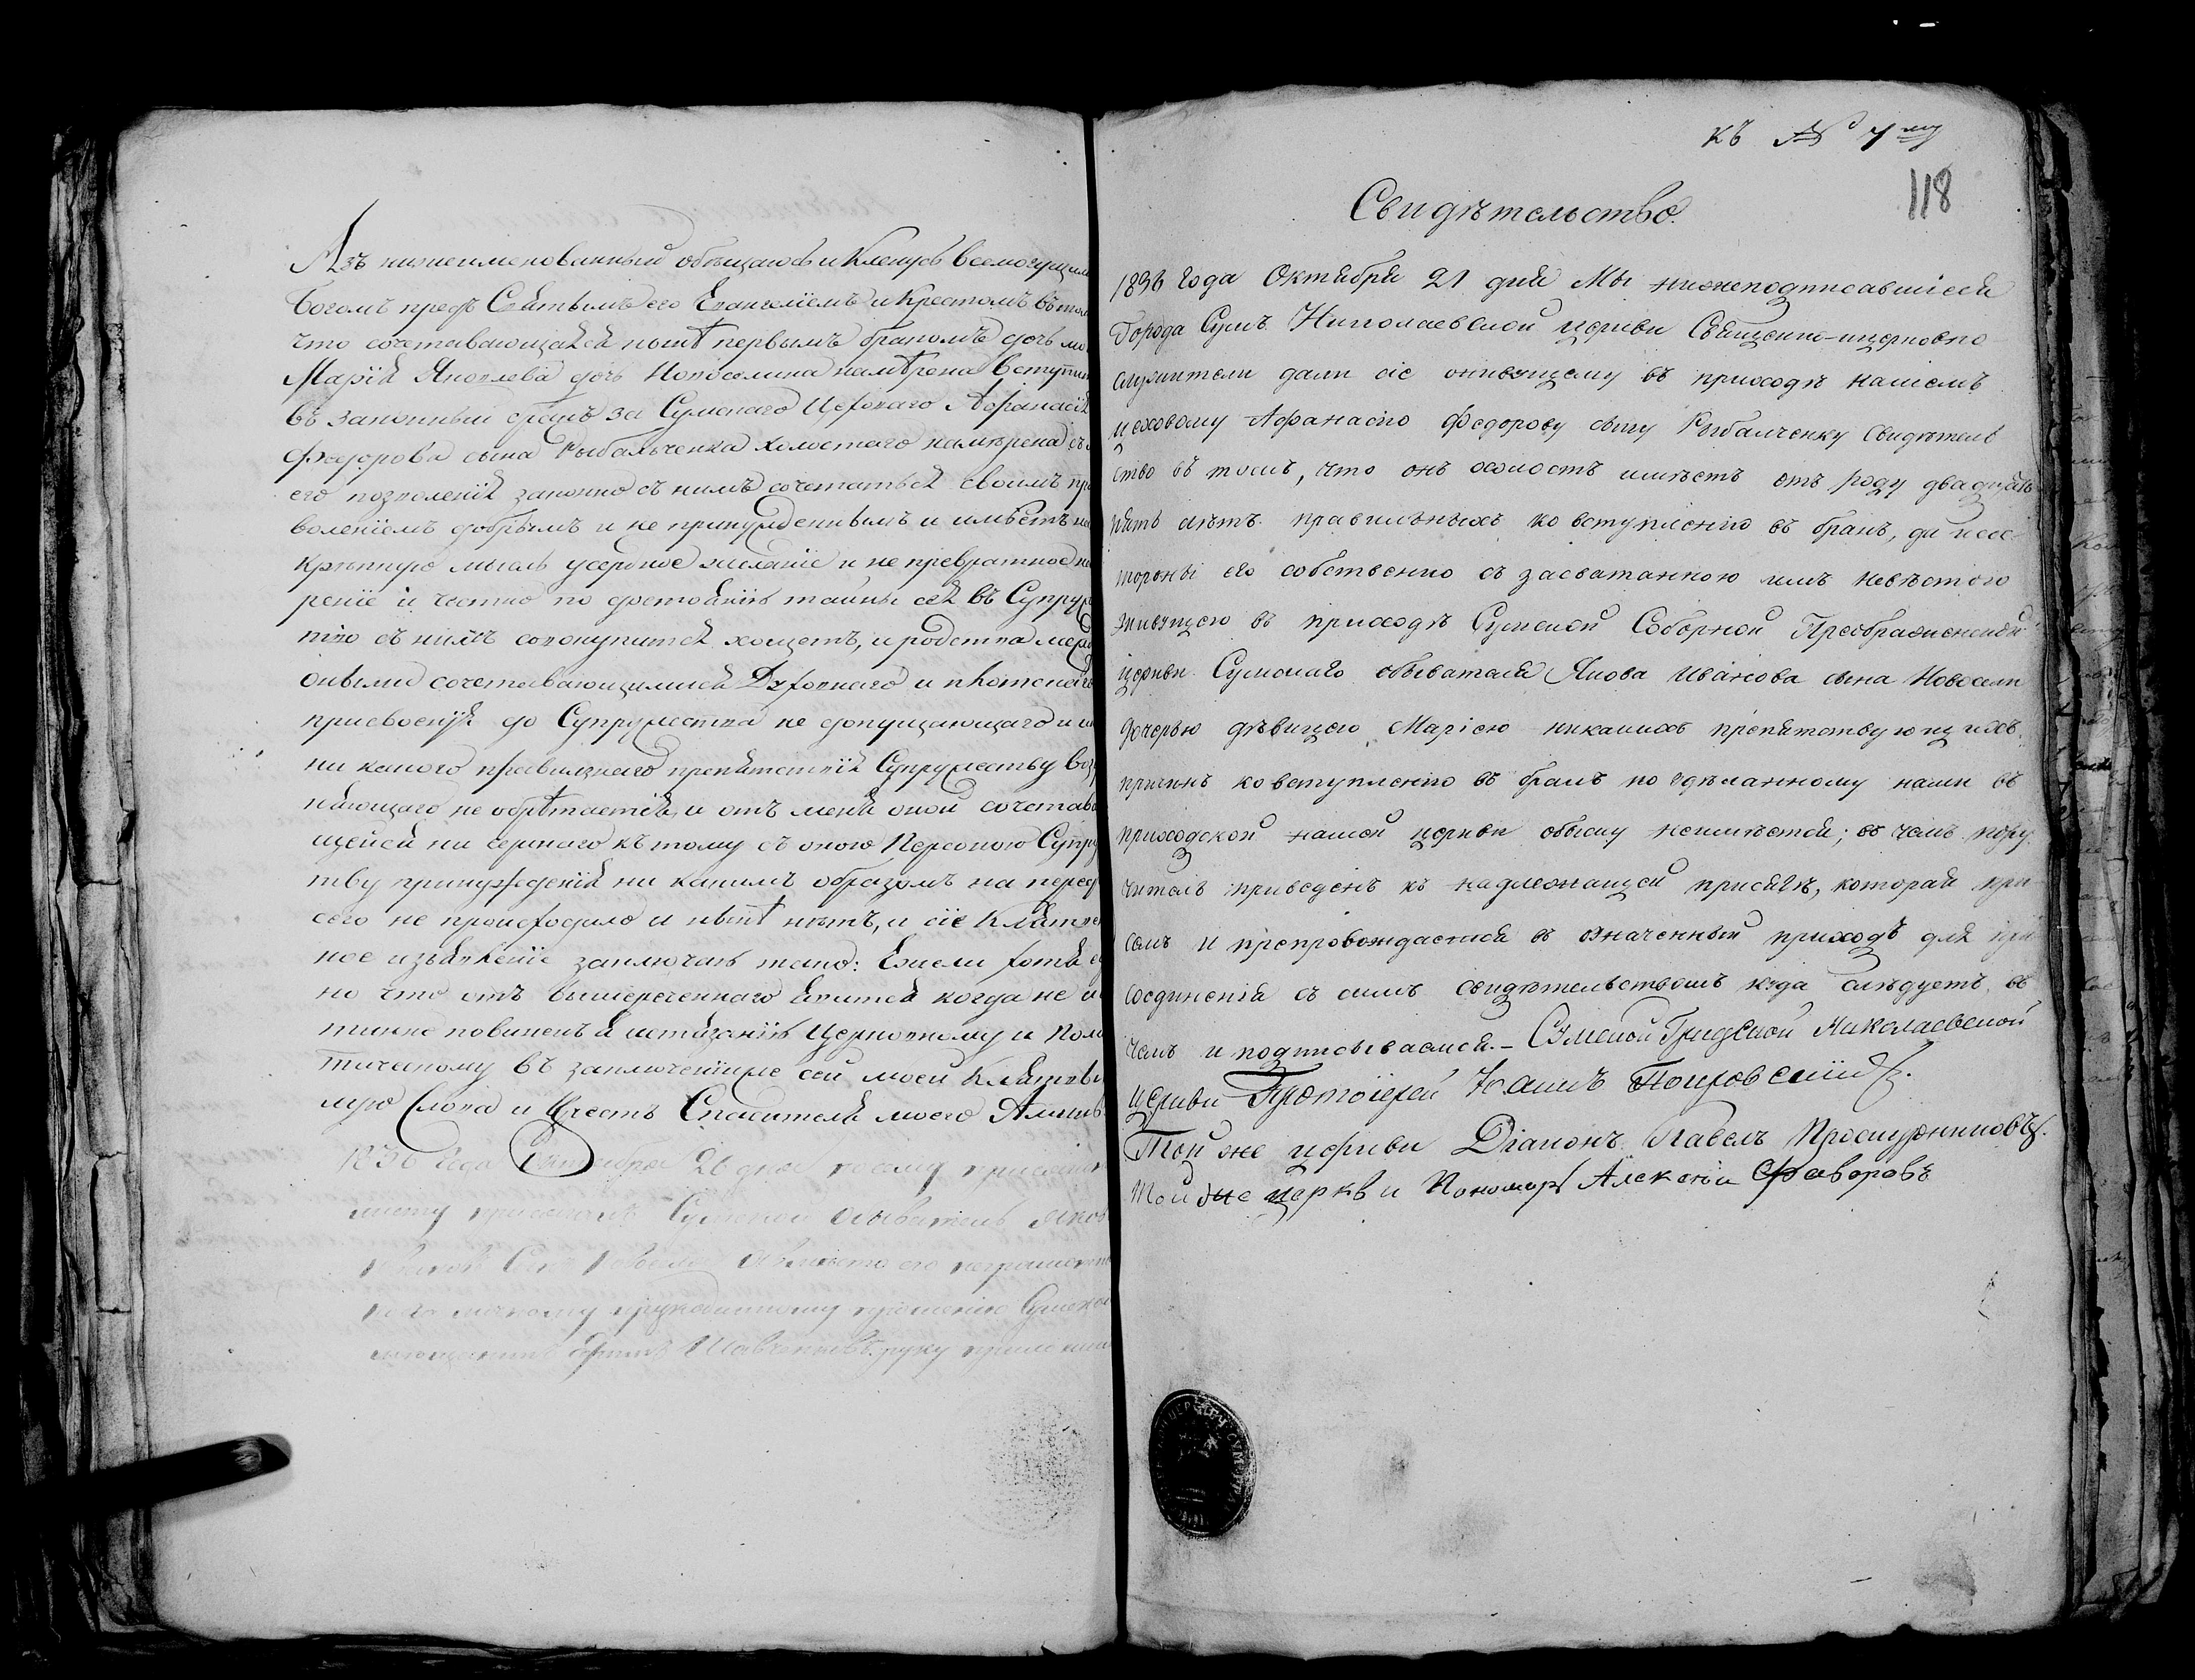 Азъ нижеименованный обѣщаюсь и Кленусь всемогущимъ
Богомъ предъ Святымъ его Евангелiемъ и Крестомъ въ том
что сочетавающаяся нынѣ первымъ бракомъ дочь мо
Марiя Яковлева дочь Новоселина намѣрена вступит
въ законный бракъ за Сумскаго Цеховаго Афанасiя
Федорова сына Рыбальченка холостаго намѣрена съ
его позволенiя законно съ нимъ сочетаться своимъ про
волепiемъ добрымъ и не принужденнымъ и имѣетъ
крѣпкую мысль усердное желанiе и не превратное
ренiе и честно по достоянiю тайны сея въ Супруж
тво съ нимъ совокупится хощетъ, и родства ме
оными сочетавающимися Духовнаго и плотскаго
присвоенiя до Супружества не допущающаго и
ни какого правильнаго препятствiя Супружеству воз
няющаго не обрѣтается, и отъ меня оной сочетава
щейся ни чернаго къ тому съ оною Персоною Супру
тву принужденiя ни какимъ образомъ на перед
сего не происходило и нынѣ нѣтъ, и сiе Клятвен
ное изъявленiе заключаю тако: Ежели хотя
но что отъ вышереченнаго явится когда не и
тинно повиненъ я истязанiю Церковному и Поли
тическому въ заключенiиже сей моей Клятвы
лую Слова и Крестъ Спасителя моего Аминь
1836 Года Октября 26 дня к сему присяжно
листу присягалъ Сумской обыватель Яков
Иванов Сынъ а вместо его неграмотн
по его личному прошенiю Сумской
мещанинъ руку приложилъ
къ № 7му
118
Свидѣтельство.
1836 года Октября 21 дня Мы нижеподписавшiеся
Города Сумъ Николаевской церкви Священно-церковно
служители дали сiе живущему въ приходѣ нашемъ
цеховому Афанасiю Федорову сыну Рыбалченку свидѣтель
ство въ томъ, что онъ холостъ имѣетъ отъ роду двадцать
пять лѣтъ правильныхъ ко вступленiю въ бракъ, да и со
стороны его собственно съ засватанною имъ невѣстою
живущею въ приходѣ Сумской Соборной Преображенской
церкви Сумскаго обывателя Якова Иванова сына Новосели
дочерью дѣвицею Марiею никакихъ препятствующихъ
причинъ ко вступленiю въ бракъ по сдѣланному нами въ
приходской нашей церкви обыску неимѣется; въ чемъ пору
читель приведенъ къ надлежащей присягѣ, которая при
семъ и препровождается въ означенный приходъ для при
соединенiя съ симъ свидѣтельствомъ куда слѣдуетъ въ
чемъ и подписываемся. – Сумской Градской Николаевской
церкви Протоiерей Iоаннъ Покровскiй
Той же церкви Дiаконъ Павелъ Просцурниковъ.
Той же церкви Пономарь Алексѣй Фаворовъ